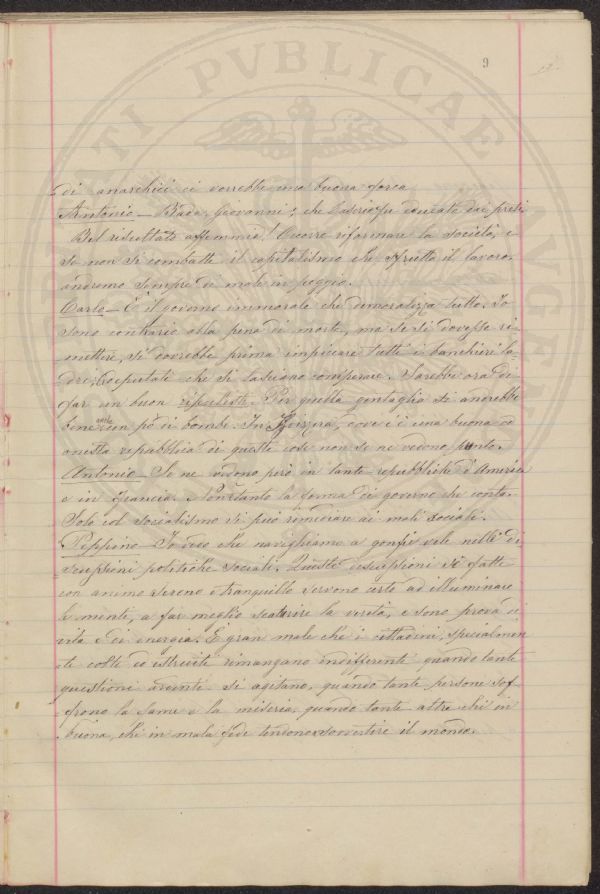 9
di anarchici ci vorrebbe una buona forca
Antonio — Bada, Giovanni, che Caserio fu educato dai preti.
Bel risultato affemmia! Occorre riformare la società, e
se non si combatte il capitalismo che sfrutta il lavoro,
andremo sempre di male in peggio.
Carlo — È il governo immorale che demoralizza tutto. Io
sono contrario alla pena di morte, ma se si dovesse ri-
mettere, si dovrebbe prima impiccare tutti i banchieri la-
dri, deputati che si lasciano comperare. Sarebbe ora di
far un buon repulisti. Per quella gentaglia si andrebbe
bene anche con pò di bombe. In Isvizzera, dove c'è una buona ed
onesta repubblica di queste cose non se ne vedono punto.
Antonio — Se ne vedono però in tante repubbliche d'America
e in Francia. Non è tanto la forma di governo che conta.
Solo col socialismo si può rimediare ai mali sociali.
Peppino — Io vedo che navighiamo a gonfie vele nelle di-
scussioni politiche sociali. Queste discussioni se fatte
con animo sereno e tranquillo servono certo ad illuminare
le menti, a far meglio scaturire la verità, e sono prova di
vita e di energia. È gran male che i cittadini, specialmen
te colti ed istruiti rimangano indifferenti quando tante
questioni ardenti si agitano, quando tante persone sof-
frono la fame e la miseria, quando tante altre chi in
buona, chi in mala fede tentono sovvertire il mondo.
PUBLICAE